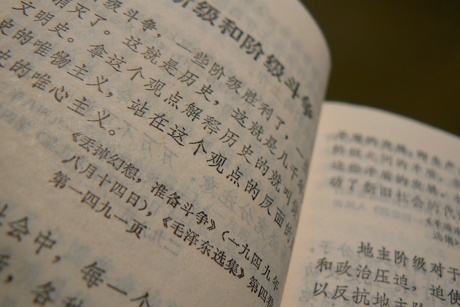 阶级和阶级斗争
级斗争，一些阶级胜利了，一
消灭了。这就是历史，这就是几千
文明史。拿这个观点解释历史的就叫
史的唯物主义，站在这个观点的反面的
史的唯心主义。
《丢掉幻想，准备斗争》（一九四九年
八月十四日），《毛泽东选集》第四卷
第一四九一页
社会中，每一个
，各种
地主阶级对于
和政治压迫，迫使
以反抗地主